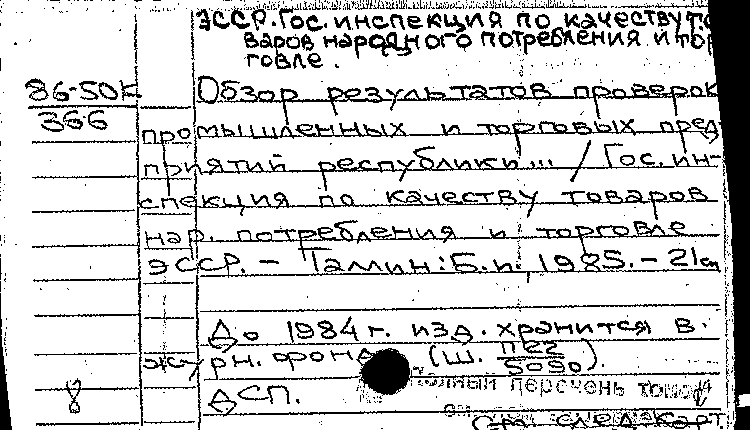 ЭССР. Гос. инспекция по качеству то
варов народного потребления и тор
говле.
86-50К Обзор результатов проверок
366
промышленных и торговых пред
приятий республики... / Гос. ин-
спекция по качеству товаров
нар. потребления и торговле
ЭССР. – Таллин: Б.и., 1985. – 21 см
До 1984 г. изд. хранится в
журн. фонд (Ш. П22/5090).
полный перечень томов
8 ДСП.
см. след. карт